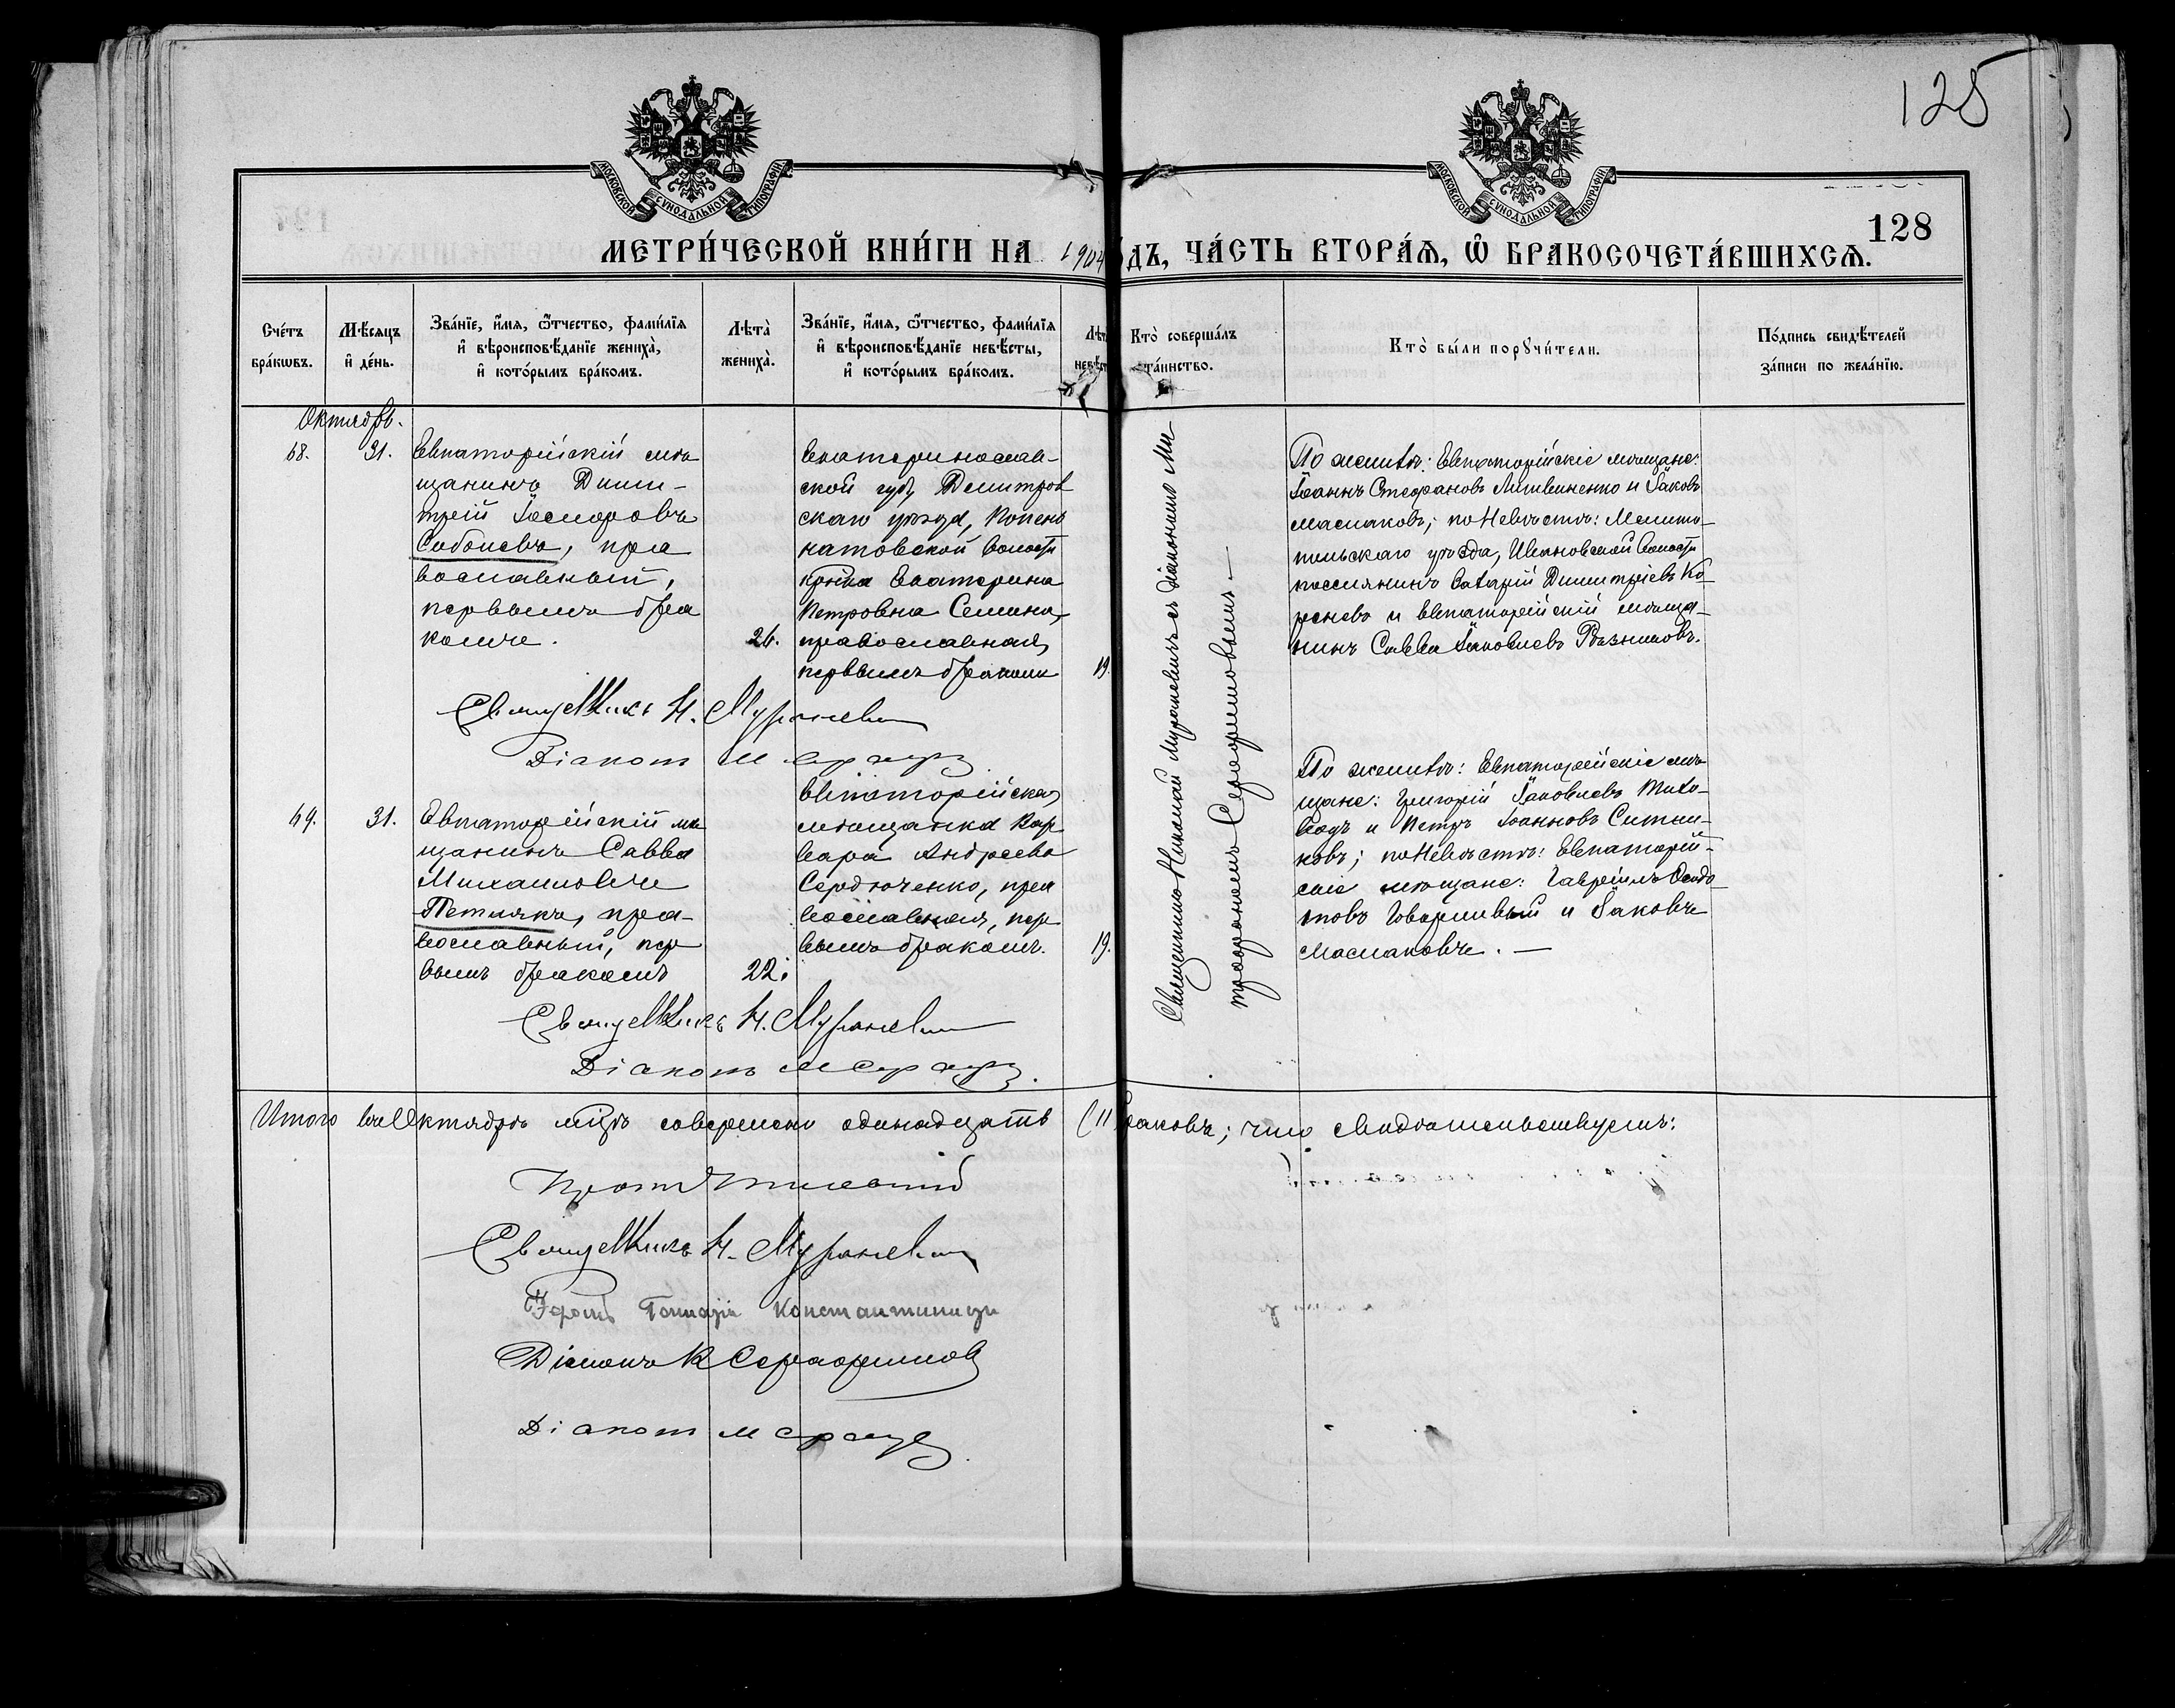 125
128
МОСКОВСКОЙ СѴНОДАЛЬНОЙ ТИПОГРАФІИ
МОСКОВСКОЙ СѴНОДАЛЬНОЙ ТИПОГРАФІИ
МЕТРИ́ЧЕСКОЙ КНИ́ГИ НА 1904 ДЪ, ЧА́СТЬ ВТОРА́Ѧ, Ѽ БРАКОСОЧЕТА́ВШИХСѦ.
Сче́тъ
бра́кωвъ.
Мѣ́сѧцъ
и҆ де́нь.
Зва́нїе, и҆́мѧ, ѻ҆́тчество, фами́лїѧ
и҆ вѣроисповѣ́данїе жениха̀,
и҆ кото́рымъ бра́комъ.
Лѣта̀
жениха̀.
Зва́нїе, и҆́мѧ, ѻ҆́тчество, фами́лїѧ
и҆ вѣроисповѣ́данїе невѣ́сты,
и҆ кото́рымъ бра́комъ.
Лѣт
невѣс
Кто̀ соверша́лъ
та́инство.
Кто̀ бы́ли порꙋчи́тели.
По́дпись свидѣ́телей
за́писи по жела́нїю.
Октябрь.
68.
31.
Евпаторійскій мѣ
щанинъ Дими-
трій
Соболевъ, пра
вославный,
первымъ бра
комъ.
26.
Екатеринослав-
ской губ., Дмитров
скаго уѣзда,
натовской волости
кр-нка Екатерина
Петровна Семина,
православная,
первымъ бракомъ
19.
Священникъ Николай Муроневичъ съ діакономъ Ми
трофаномъ Серафимовымъ.—
По женихѣ: Евпаторійскіе мѣщане:
Іоаннъ Стефановъ Литвиненко и Іаковъ
Маслаковъ; по невѣстѣ: Мелито-
польскаго уѣзда, Ивановской волости
поселянинъ Захарій Димитріевъ Ко-
реневъ и Евпаторійскій мѣща-
нинъ Савва Іаковлевъ Рѣзниковъ.
Священникъ Н. Муроневичъ
Діаконъ
69.
31.
Евпаторійскій мѣ
щанинъ Савва
Михаиловичъ
Петлякъ, пра-
вославный, пер
вымъ бракомъ
22.
Евпаторійская
мѣщанка Вар
вара Андреева
Сердюченко, пра
вославная, пер
вымъ бракомъ.
19.
По женихѣ: Евпаторійскіе мѣ
щане: Григорій Іаковлевъ
и Петръ Іоанновъ Ситни-
ковъ; по невѣстѣ: Евпаторій-
скіе мѣщане: Гавріилъ
товъ и Іаковъ
Маслаковъ.—
Священникъ Н. Муроневичъ
Діаконъ
Итого въ Октябрѣ м-цѣ совершено одинадцать (11 браковъ; что свидѣтельствуемъ:
Прот
Священникъ Н. Муроневичъ
Константиниди
Діаконъ Серафимовъ
Діаконъ